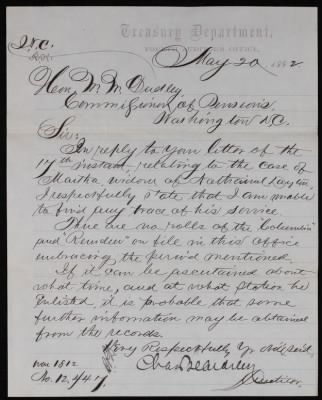 Treasury Department,
FOURTH AUDITOR'S OFFICE,
May 20, 1882
Hon. W. W. Dudley,
Commissioner of Pensions,
Washington D.C.
Sir:
In reply to your letter of the
17th instant, relating to the case of
Martha, widow of Nathaniel
I respectfully state that I am unable
to find any trace of his service.
There are no rolls of the "Columbia"
and "Reindeer" on file in this office
embracing the period mentioned.
If it can be ascertained about
what time, and at what station he
enlisted, it is probable that some
further information may be obtained
from the records.
Very Respectfully Yr Obdt. servt,
Chas Beardsley
Auditor.
War 1812
No. 12,447.